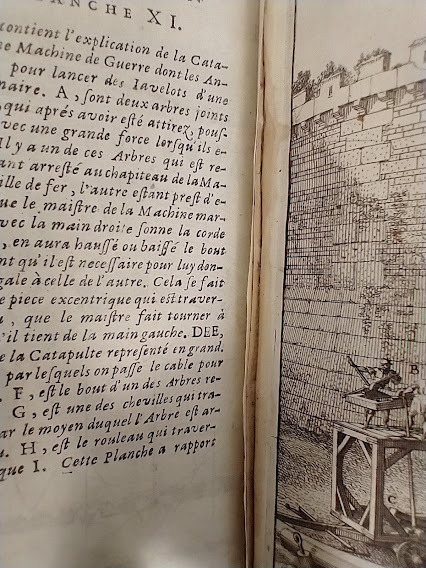 ANCHE XI.
contient l'explication de la Cata-
ne Machine de Guerre dont les An-
pour lancer des Iavelots d'une
naire. A, ſont deux arbres joints
qui aprés avoir eſté attirez, pouſ-
avec une grande force lorſqu'ils e-
Il y a un de ces Arbres qui eſt re-
ant arreſté au chapiteau de la Ma-
ille de fer, l'autre eſtant preſt d'e-
que le maiſtre de la Machine mar-
avec la main droite ſonne la corde
, en aura hauſſé ou baiſſé le bout
nt qu'il eſt neceſſaire pour luy don-
gale à celle de l'autre. Cela ſe fait
e piece excentrique qui eſt traver-
u, que le maiſtre fait tourner à
'il tient de la main gauche. DEE,
e la Catapulte repreſenté en grand.
par leſquels on paſſe le cable pour
F, eſt le bout d'un des Arbres re-
G, eſt une des chevilles qui tra-
ar le moyen duquel l'Arbre eſt ar-
u. H, eſt le rouleau qui traver-
que I. Cette Planche a rapport
B
C